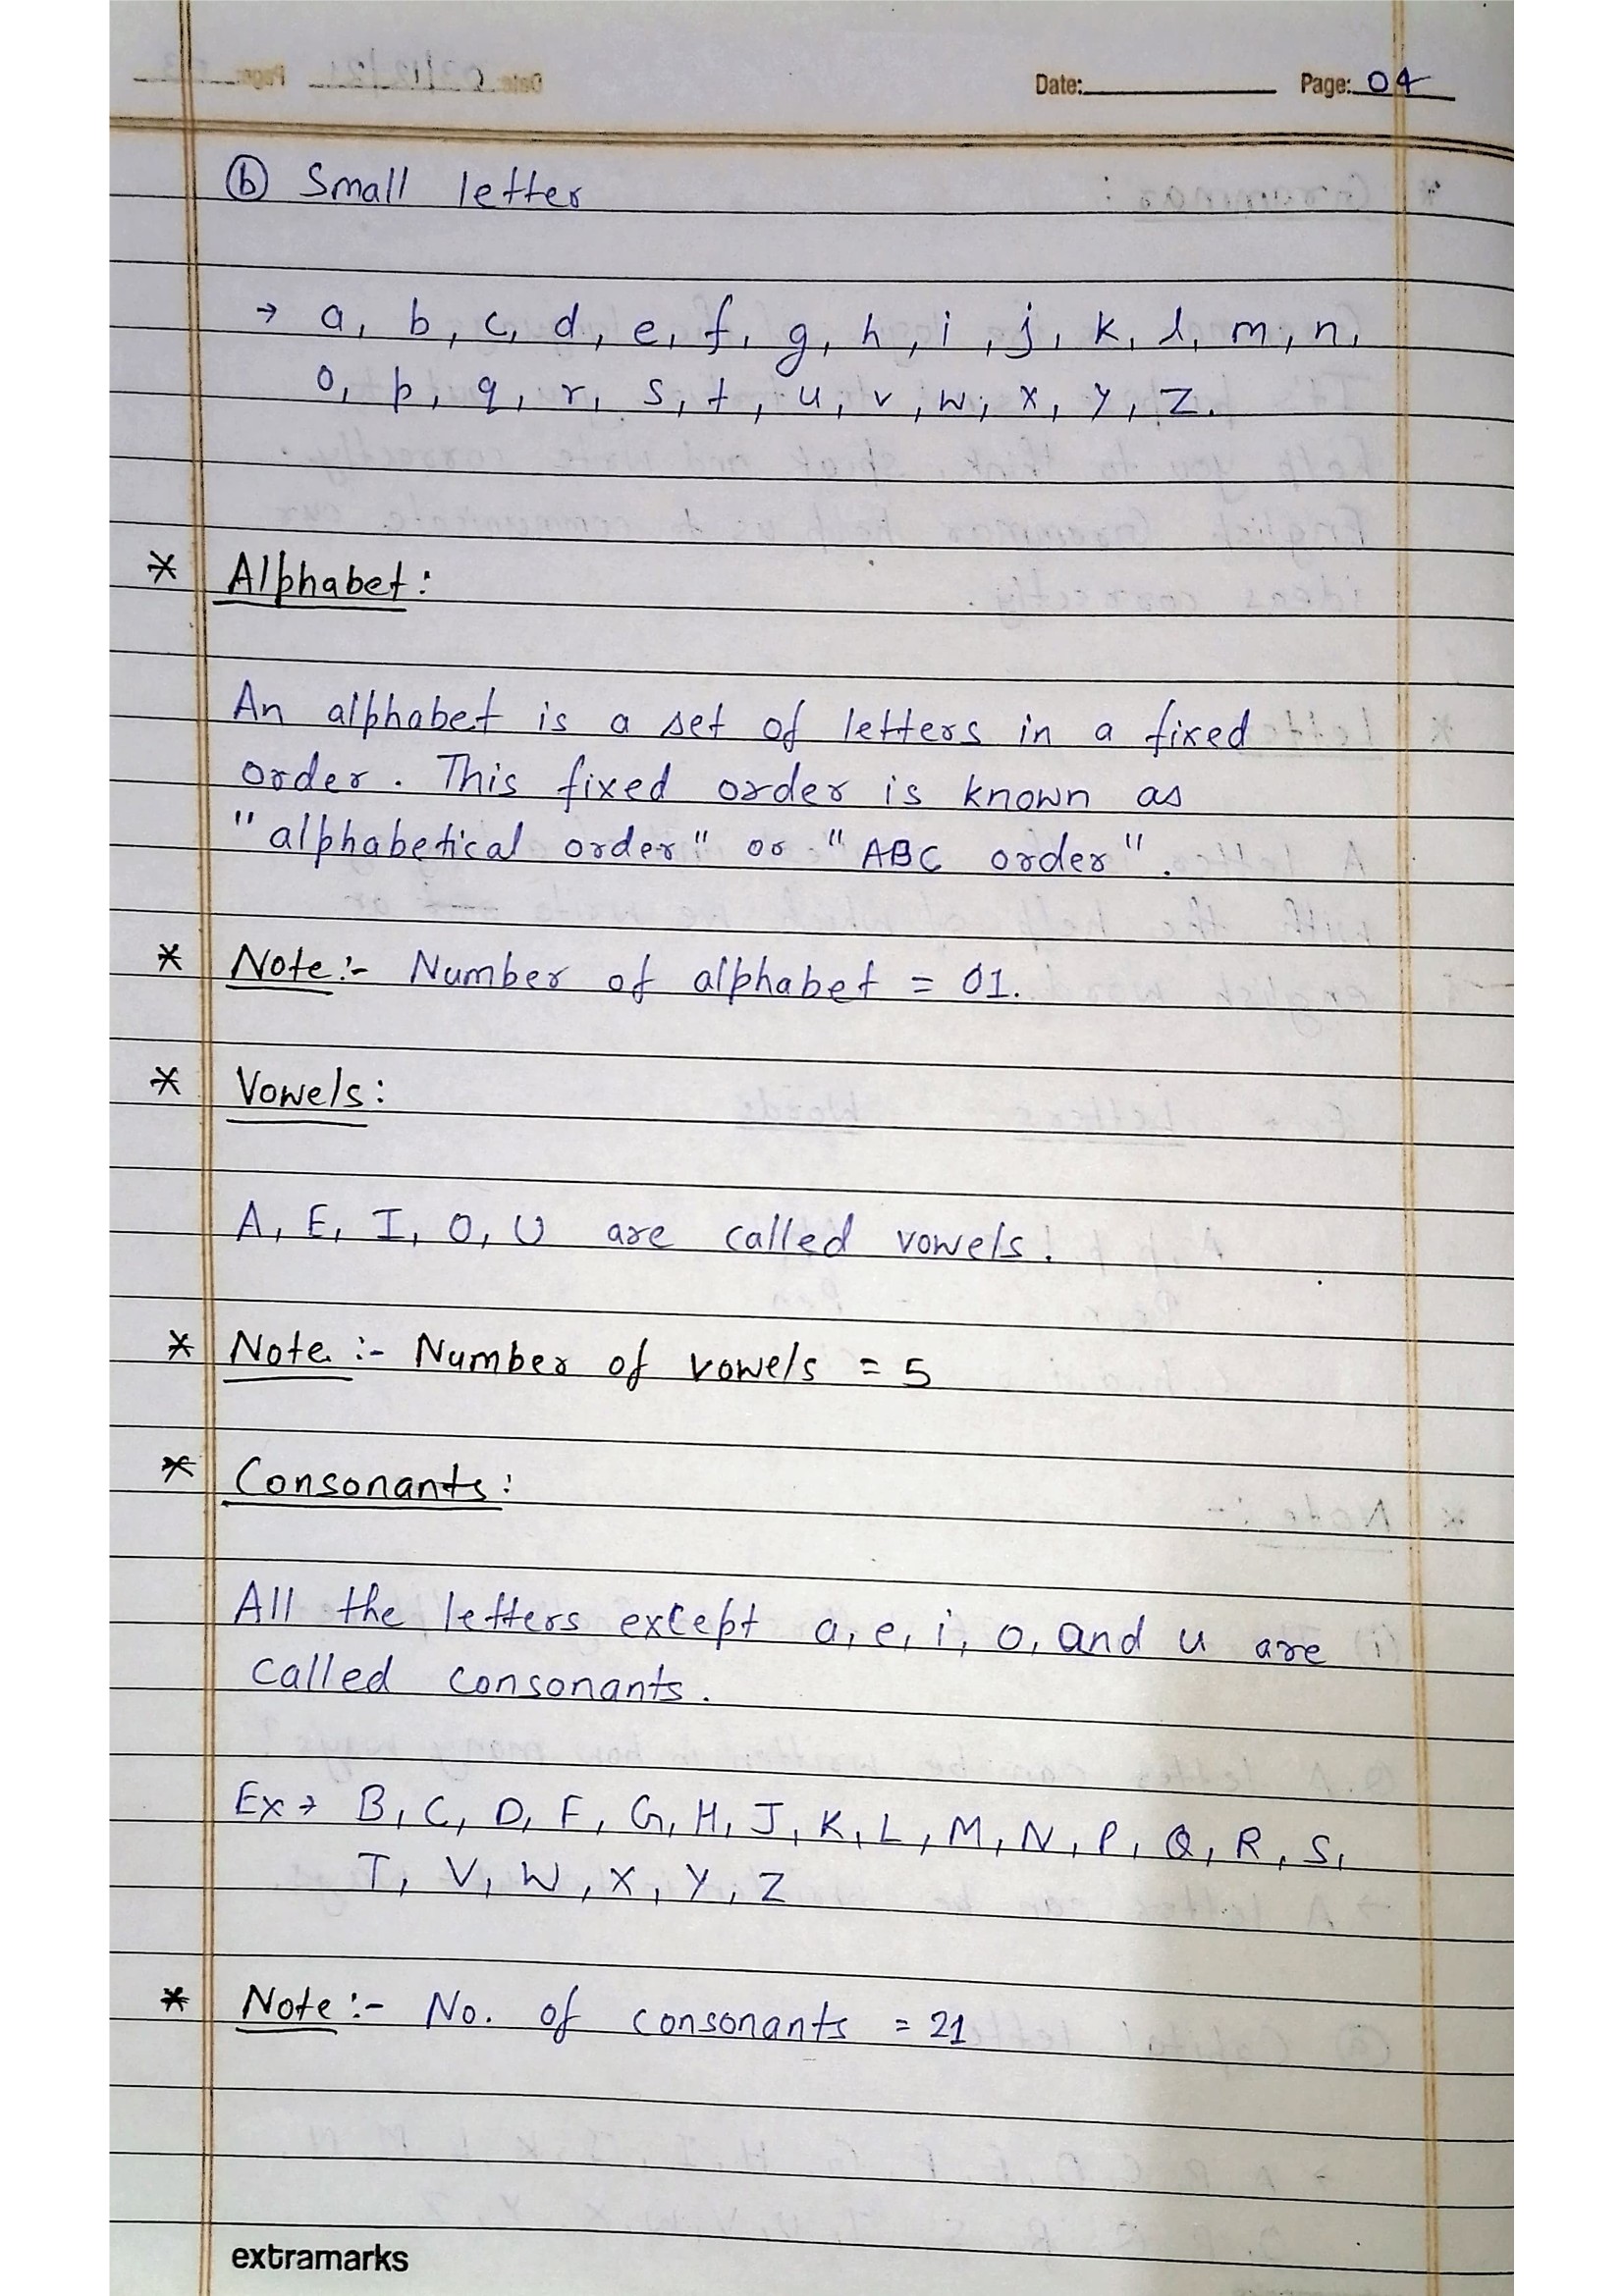 Date: Page: 04
ⓑ Small letter
→ a, b, c, d, e, f, g, h, i, j, k, l, m, n,
o, p, q, r, s, t, u, v, w, x, y, z.
* Alphabet:
An alphabet is a set of letters in a fixed
order. This fixed order is known as
"alphabetical order" or "ABC order".
* Note:- Number of alphabet = 01.
* Vowels:
A, E, I, O, U are called vowels.
* Note:- Number of vowels = 5
* Consonants:
All the letters except a, e, i, o, and u are
called consonants.
Ex→ B, C, D, F, G, H, J, K, L, M, N, P, Q, R, S,
T, V, W, X, Y, Z
* Note:- No. of consonants = 21
extramarks